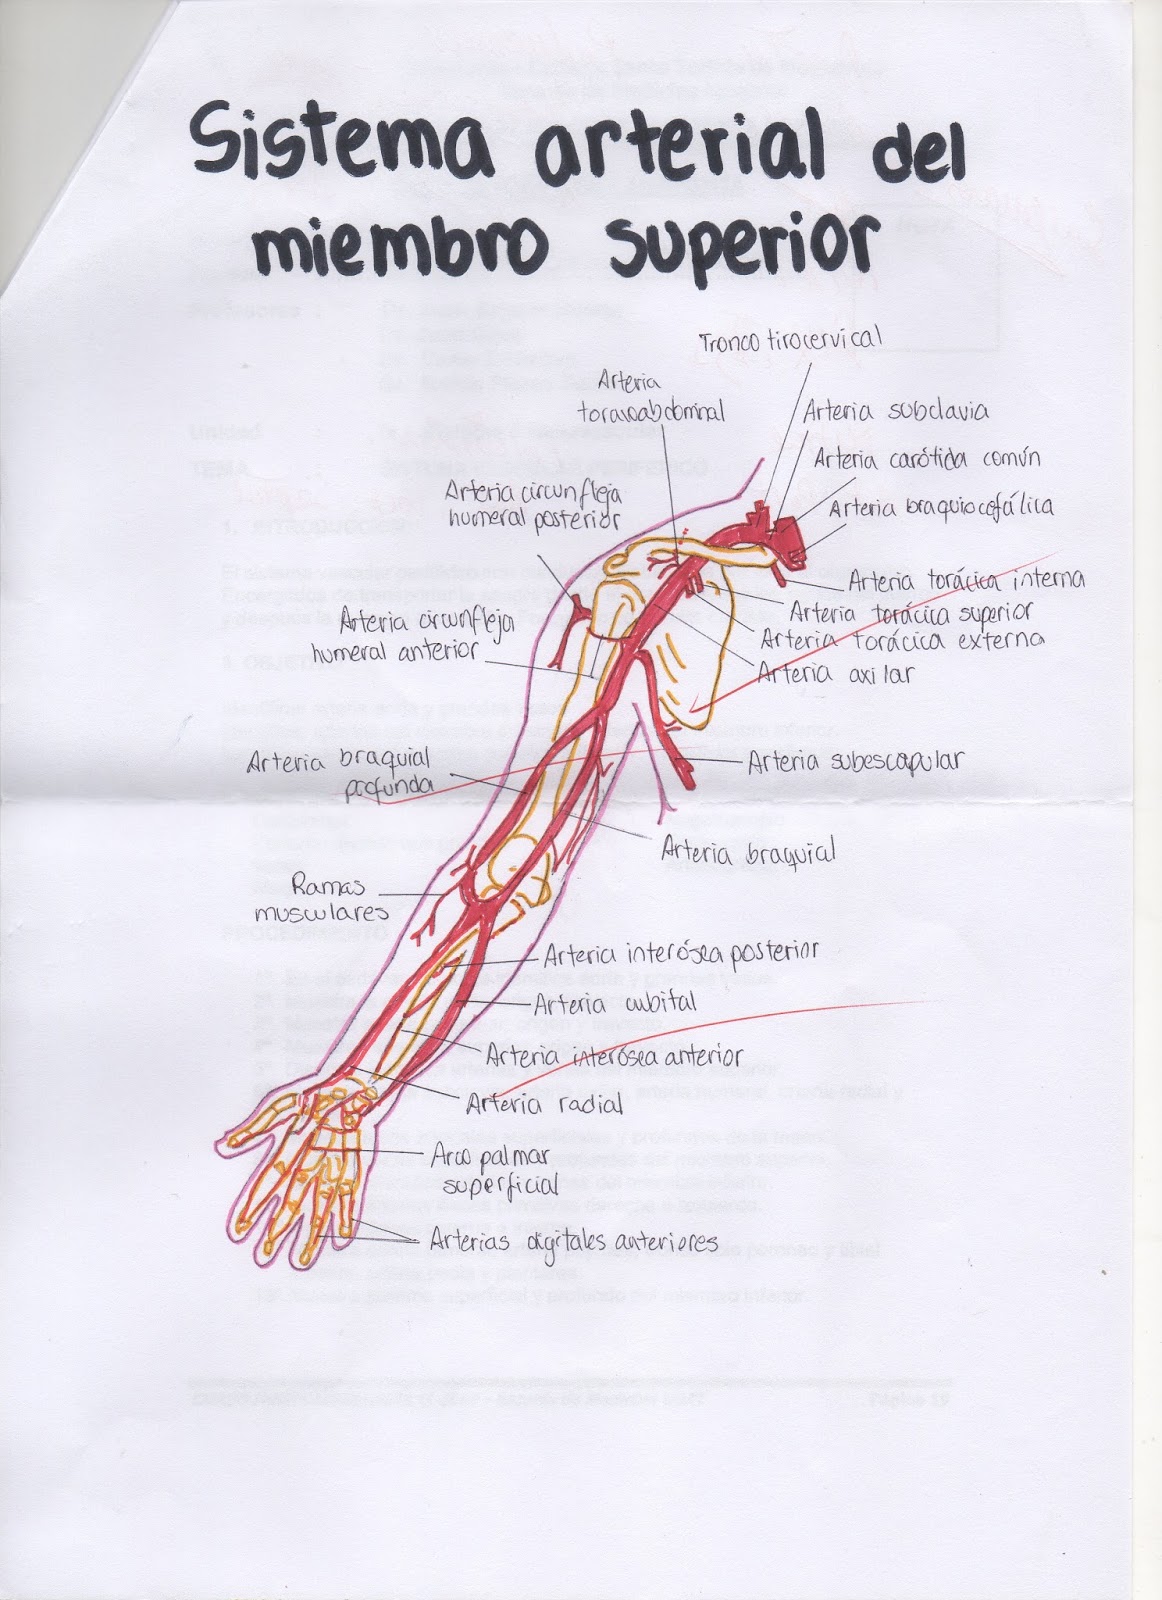 Sistema arterial del
miembro superior
Tronco tirocervical
Arteria
toracoabdominal
Arteria subclavia
Arteria carótida común
Arteria circunfleja
humeral posterior
Arteria braquiocefálica
Arteria torácica interna
Arteria torácica superior
Arteria circunfleja
humeral anterior
Arteria torácica externa
Arteria axilar
Arteria braquial
profunda
Arteria subescapular
Arteria braquial
Ramas
musculares
Arteria interósea posterior
Arteria cubital
Arteria interósea anterior
Arteria radial
Arco palmar
superficial
Arterias digitales anteriores